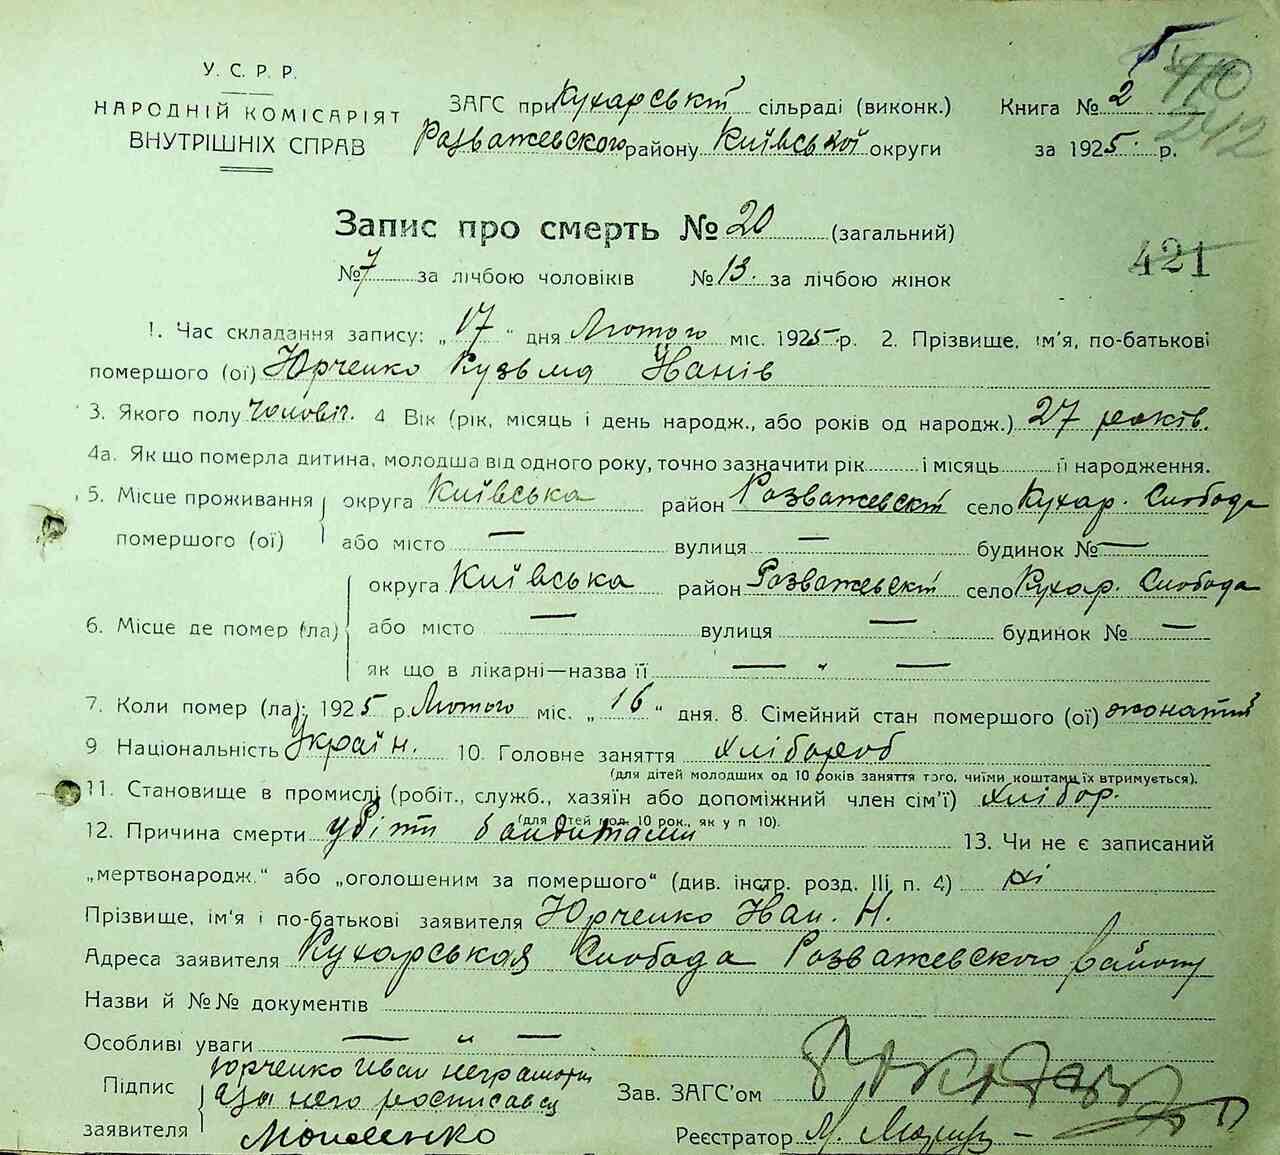 У. С. Р. Р.
НАРОДНІЙ КОМІСАРІЯТ
ВНУТРІШНІХ СПРАВ
ЗАГС при Кухарській сільраді (виконк.)
Розважевского району Київської округи
Книга № 2
за 1925 р.
470
242
Запис про смерть № 20 (загальний)
№ 7 за лічбою чоловіків № 13. за лічбою жінок
421
1. Час складання запису: „17" дня Лютого міс. 1925 р. 2. Прізвище, ім'я, по-батькові
помершого (ої) Юрченко Кузьма Іванів
3. Якого полу чоловіч. 4 Вік (рік, місяць і день народж., або років од народж.) 27 років.
4а. Як що померла дитина, молодша від одного року, точно зазначити рік і місяць її народження.
5. Місце проживання округа Київська район Розважевскій село Кухар. Слобода
помершого (ої) або місто — вулиця — будинок № —
округа Київська район Розважевскій село Кухар. Слобода
6. Місце де помер (ла) або місто — вулиця — будинок № —
як що в лікарні—назва її — „ —
7. Коли помер (ла): 1925 р. Лютого міс. „16" дня. 8. Сімейний стан помершого (ої) жонатий
9 Національність Україн. 10. Головне заняття хлібороб
(для дітей молодших од 10 років заняття того, чиїми коштами їх втримується).
11. Становище в промислі (робіт., служб., хазяїн або допоміжний член сім'ї) хлібор.
(для дітей мол. 10 рок., як у п 10).
12. Причина смерти убітт бандитами 13. Чи не є записаний
„мертвонародж." або „оголошеним за помершого" (див. інстр. розд. III п. 4) ні
Прізвище, ім'я і по-батькові заявителя Юрченко Іван. Н.
Адреса заявителя Кухарськая Слобода Розважевского району
Назви й №№ документів
Особливі уваги — „ —
Підпис заявителя Юрченко Иван неграмотн
а за него росписався
Зав. ЗАГС'ом
Реєстратор М.